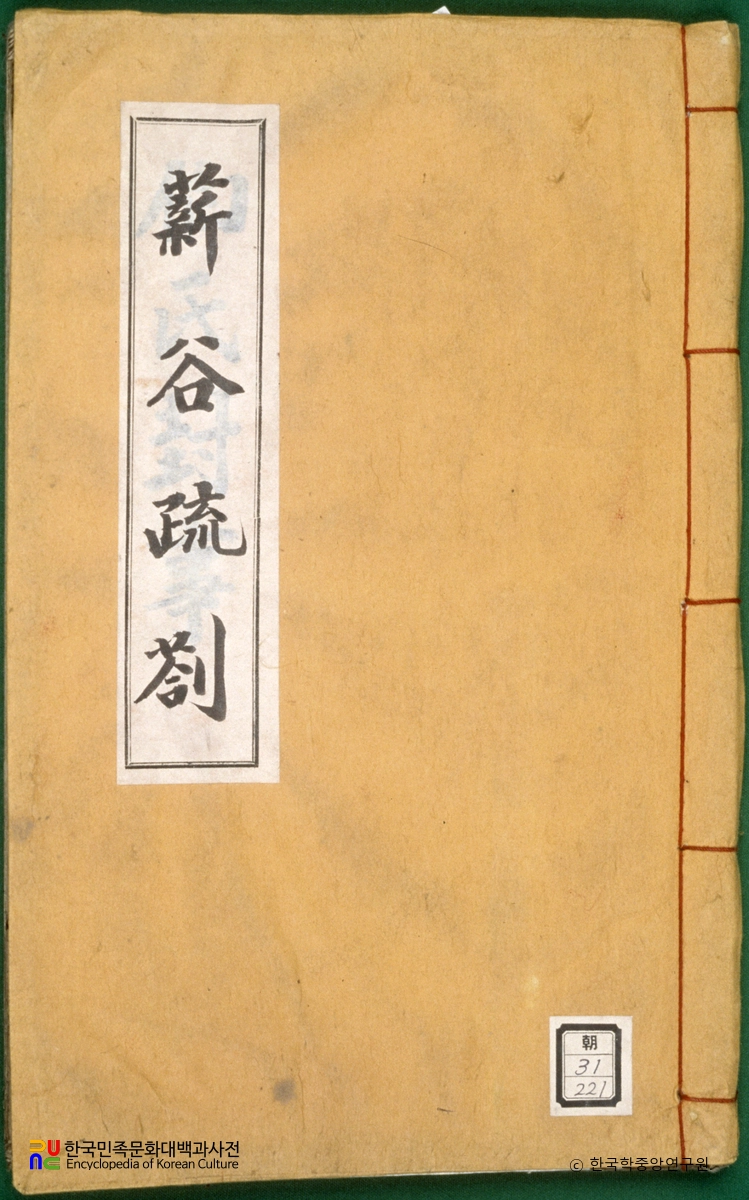 薪谷疏劄
朝
31
221
한국민족문화대백과사전
Encyclopedia of Korean Culture
© 한국학중앙연구원